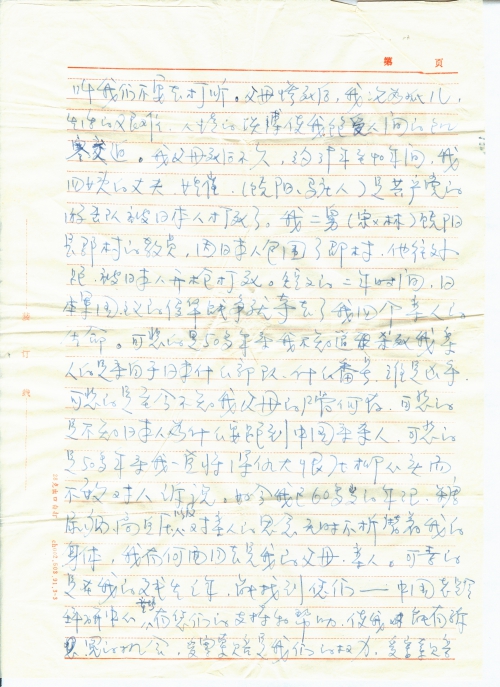 第 页
叫我们不要去打听。父母惨死后，我沦为孤儿，
生活的艰难 人情的淡薄使我饱受人间的饥
寒交迫。我父母死后不久，约39年至40年间，我
四姨的丈夫 姓崔，（饶阳 人）是共产党的
游击队被日本人打死了。我二舅（宋 林）饶阳
县 村的教员，因日本人包围了 村，他往外
跑，被日本人开枪打死。短短的二年时间，日
本军国主义的侵华战争就夺去了我四个亲人的
生命。可悲的是50多年来我不知道 杀死我亲
人的是来自于日本什么部队、什么番号，谁是凶手，
可悲的是至今不知我父母的尸骨何存，可悲的
是不知日本人为什么要跑到中国来杀人，可悲的
是50多年来我一直将深仇大恨压抑心头而
不敢对人诉说。如今我已60多岁的年纪，糖
尿病、高血压 对亲人的思念无时不折磨着我的
身体，我为何 因 去见我的父母、亲人。可喜的
是在我的有生之年，能找到你们——中国
研中心 有你们的支持和帮助，使我能有诉
冤的机会，受害索赔是我们的权力，受害索赔